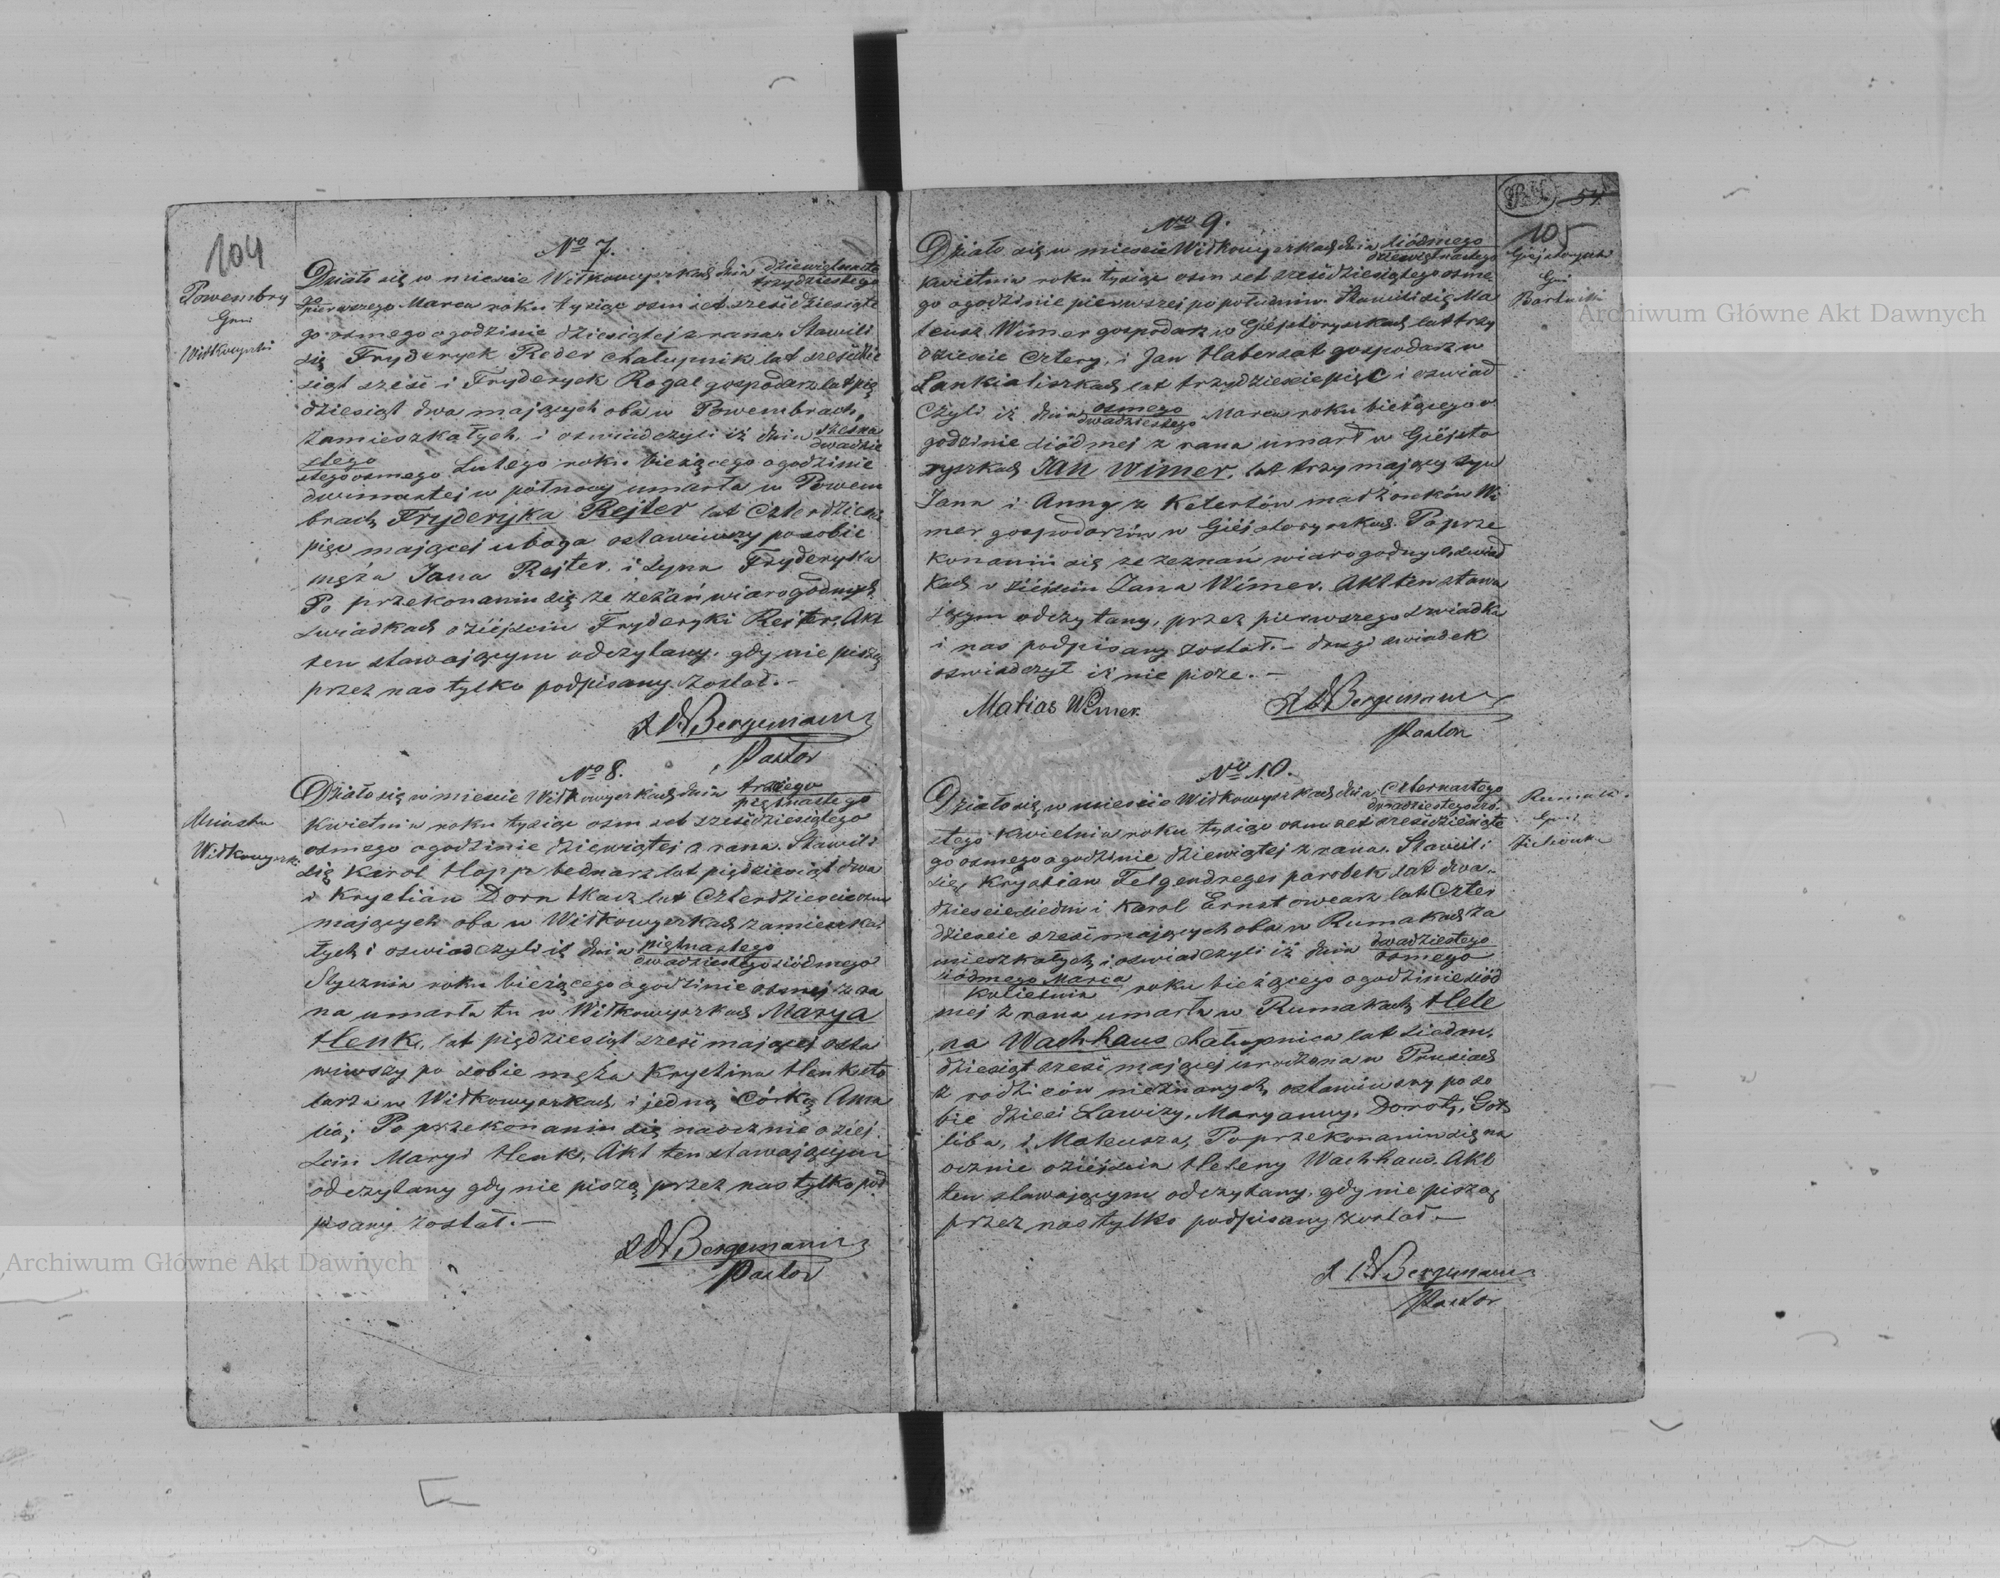 104
Powembry
Gmi
Wiłkowyszki
No 7.
Działo się w miescie Wiłkowyszkach dnia dziewiętnaste
trzydziestego
go
pierwszego Marca roku tysiąc osm set sześćdziesiąte
go osmego o godzinie dziesiątej z rana. Stawili
się Fryderyck Reder chałupnik lat sześćdzie
siąt sześć i Fryderyck Rogal gospodarz lat pię
dziesiąt dwa mających oba w Powembrach
zamieszkałych, i oswiadczyli iż dnia szesna
dwudzie
stego
stego osmego Lutego roku bieżącego o godzinie
dwunastej w północy umarła w Powem
brach Fryderyka Rejter lat czterdzieści
pięć mającej uboga ostawiwszy po sobie
męża Jana Rejter, i syna Fryderyka
Po przekonaniu się ze zezań wiarogodnych
swiadkach o zéjsciu Fryderyki Rejter, Akt
ten stawającym odczytany, gdy nie piszą
przez nas tylko podpisany został. —
Bergemann
Pastor
No 8.
Miasta
Wiłkowyszki
Działo się w miescie Wiłkowyszkach dnia trzeciego
piętnastego
Kwietnia roku tysiąc osm set sześćdziesiątego
osmego o godzinie dziewiątej z rana. Stawili
się Karol Happ bednarz lat pięćdziesiąt dwa
i Krystian Dorn tkacz lat czterdzieści osm
mających oba w Wiłkowyszkach zamieszka
łych i oswiadczyli iż dnia piętnastego
dwudziestego siódmego
Stycznia roku bieżącego o godzinie osmej z ra
na umarła tu w Wiłkowyszkach Marya
Henk, lat pięćdziesiąt sześć mającej osta
wiwszy po sobie męża Krystina Henk sto
larza w Wiłkowyszkach i jedną Córkę Ama
lió; Po przekonaniu się naocznie o zéj
sciu Maryi Henk, Akt ten stawającym
odczytany gdy nie piszą przez nas tylko pod
pisany został. —
Bergemann
Pastor
54
105
Giejstoryszki
Gmi
Bartniki
No 9.
Działo się w miescie Wiłkowyszkach dnia siódmego
dziewiętnastego
Kwietnia roku tysiąc osm set sześćdziesiątego osme
go o godzinie pierwszej po południu. Stawili się Ma
teusz Wimer gospodarz w Giéjstoryszkach lat trzy
dziescie cztery, i Jan Habersat gospodarz w
Lankieliszkach lat trzydziescie pięć i oswiad
czyli iż dnia osmego
dwudziestego Marca roku bieżącego o
godzinie siódmej z rana umarł w Giéjsto
ryszkach Jan Wimer, lat trzy mający syn
Jana i Anny z Ketertów małżonków Wi
mer gospodarzów w Giéjstoryszkach. Po prze
konaniu się ze zeznań wiarogodnych swiad
kach o zéjsciu Jana Wimer. Akt ten stawa
jącym odczytany, przez pierwszego swiadka
i nas podpisany został. — drugi swiadek
oswiadczył iż nie pisze. —
Matias Wimer.
Bergemann
Pastor
No 10.
Rumaki.
Gmi
Działo się w miescie Wiłkowyszkach dnia czternastego
dwudziestego szó.
stego Kwietnia roku tysiąc osm set sześćdziesiąte
go osmego o godzinie dziewiątej z rana. Stawili
się Krystian Felgendreger parobek lat dwa-
dziescie siedm i Karol Ernst owcarz lat czter
dziescie sześć mających oba w Rumakach za
mieszkałych i oswiadczyli iż dnia dwudziestego
osmego
siódmego Marca
Kwietnia roku bieżącego o godzinie siód
mej z rana umarła w Rumakach Hele
na Wachhaus chałupnica lat siedm,
dziesiąt sześć mającej urodzona w Prusiach
z rodziców nieznanych, ostawiwszy po so
bie dzieci Lawizy, Maryanny, Doroty, Got
liba, i Mateusza, Po przekonaniu się na
ocznie o zéjsciu Heleny Wachhaus. Akt
ten stawającym odczytany, gdy nie piszą
przez nas tylko podpisany został. —
Bergemann
Pastor
Archiwum Główne Akt Dawnych
Archiwum Główne Akt Dawnych